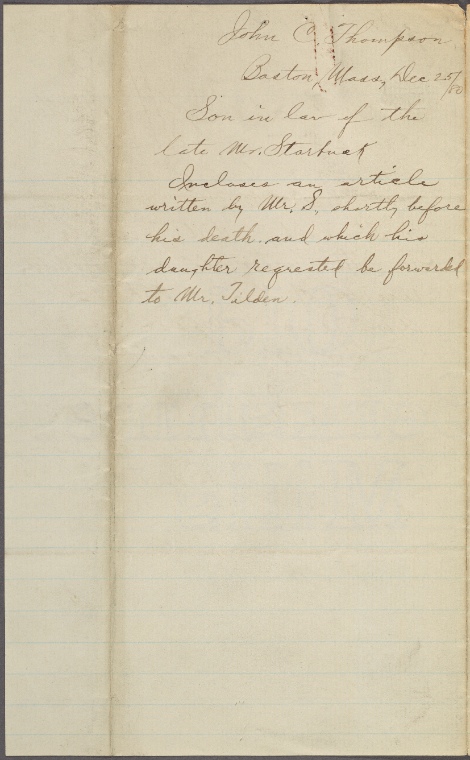 John C. Thompson
Boston, Mass, Dec 25/80
Son in law of the
late Mr. Starbuck
Incloses an article
written by Mr. S. shortly before
his death and which his
daughter requested be forwarded
to Mr. Tilden.